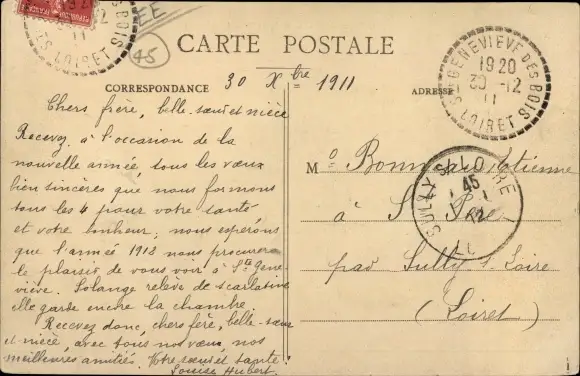 45
CARTE POSTALE
CORRESPONDANCE
30 Xbre 1911
ADRESSE
STE GENEVIEVE DES BOIS
1920
30 -12
11
LOIRET
LOIRET
Chers frère, belle-sœur et nièce
Recevez à l'occasion de la
nouvelle année, tous les vœux
bien sincères que nous formons
tous les 4 pour votre santé
et votre bonheur; nous espérons
que l'année 1912 nous procurera
le plaisir de vous voir à Ste Gene-
viève. Solange relève de scarlatine
elle garde encore la chambre.
Recevez donc, chers frère, belle-sœur
et nièce, avec tous nos vœux, nos
meilleures amitiés. Votre sœur et tante
Louise Hubert.
Mo Etienne
à
par Sully s. Loire
(Loiret)
SULLY S. LOIRE
45
12